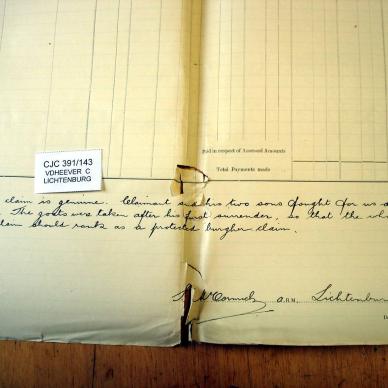 paid in respect of Assessed Amounts
Total Payments made
CJC 391/143
VDHEEVER C
LICHTENBURG
claim is genuine. Claimant and his two sons fought for us
The goats were taken after his first surrender, so that the
claim should rank as a protected burgher claim.
McCormick A.R.M. Lichtenburg